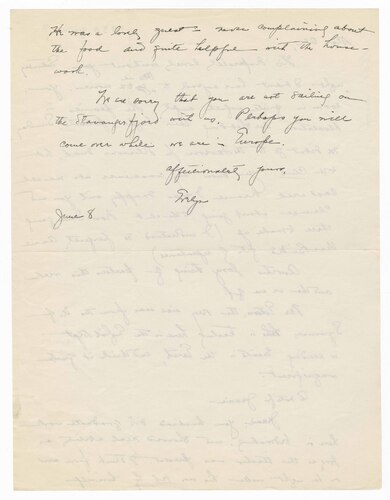 He was a lovely guest - never complaining about
the food and quite helpful with the house-
work.
We are sorry that you are not sailing on
the Stavangerfjord with us. Perhaps you will
come over while we are in Europe.
affectionately yours,
Evelyn
June 8